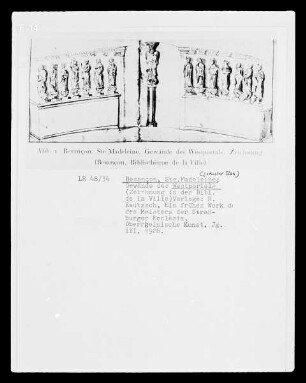 Abb. 2 Besançon, Ste Madeleine, Gewände des Westportals. Zeichnung
(Besançon, Bibliothèque de la Ville)
LR 48/34
Besançon, Ste. Madeleine:
Gewände des Westportals
(Zeichnung in der Bibl.
de la Ville) Vorlage: R.
Kautzsch, Ein frühes Werk d
des Meisters der Straß-
burger Ecclesia,
Oberrheinische Kunst, Jg.
III, 1928.